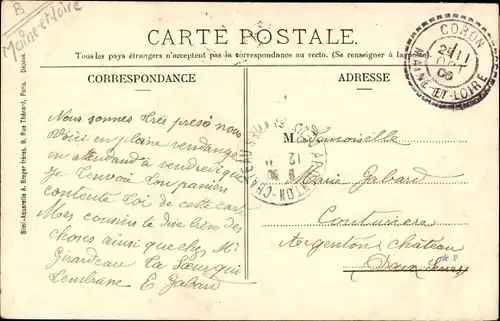 B
Maine-et-Loire
CARTE POSTALE
Tous les pays étrangers n'acceptent pas la correspondance au recto. (Se renseigner à la poste).
CORRESPONDANCE
ADRESSE
CORON
11
OCT
06
MAINE-ET-LOIRE
Nous sommes très pressé nous
voici en pleine vendange
en attendant vendredi que
je t'envoi ton panier
contente toi de cette carte
Mes cousins te dise bien des
choses ainsi que chez Mr
Girardeau ta Sœur qui
t'embrasse E Gabard
ARGENTON-CHATEAU
12
Mademoiselle
Marie Gabard
Couturière
Argenton Château
Deux Sèvres
* P
Simi-Aquarelle A. Breger frères, 9, Rue Thénard, Paris. Déposé.